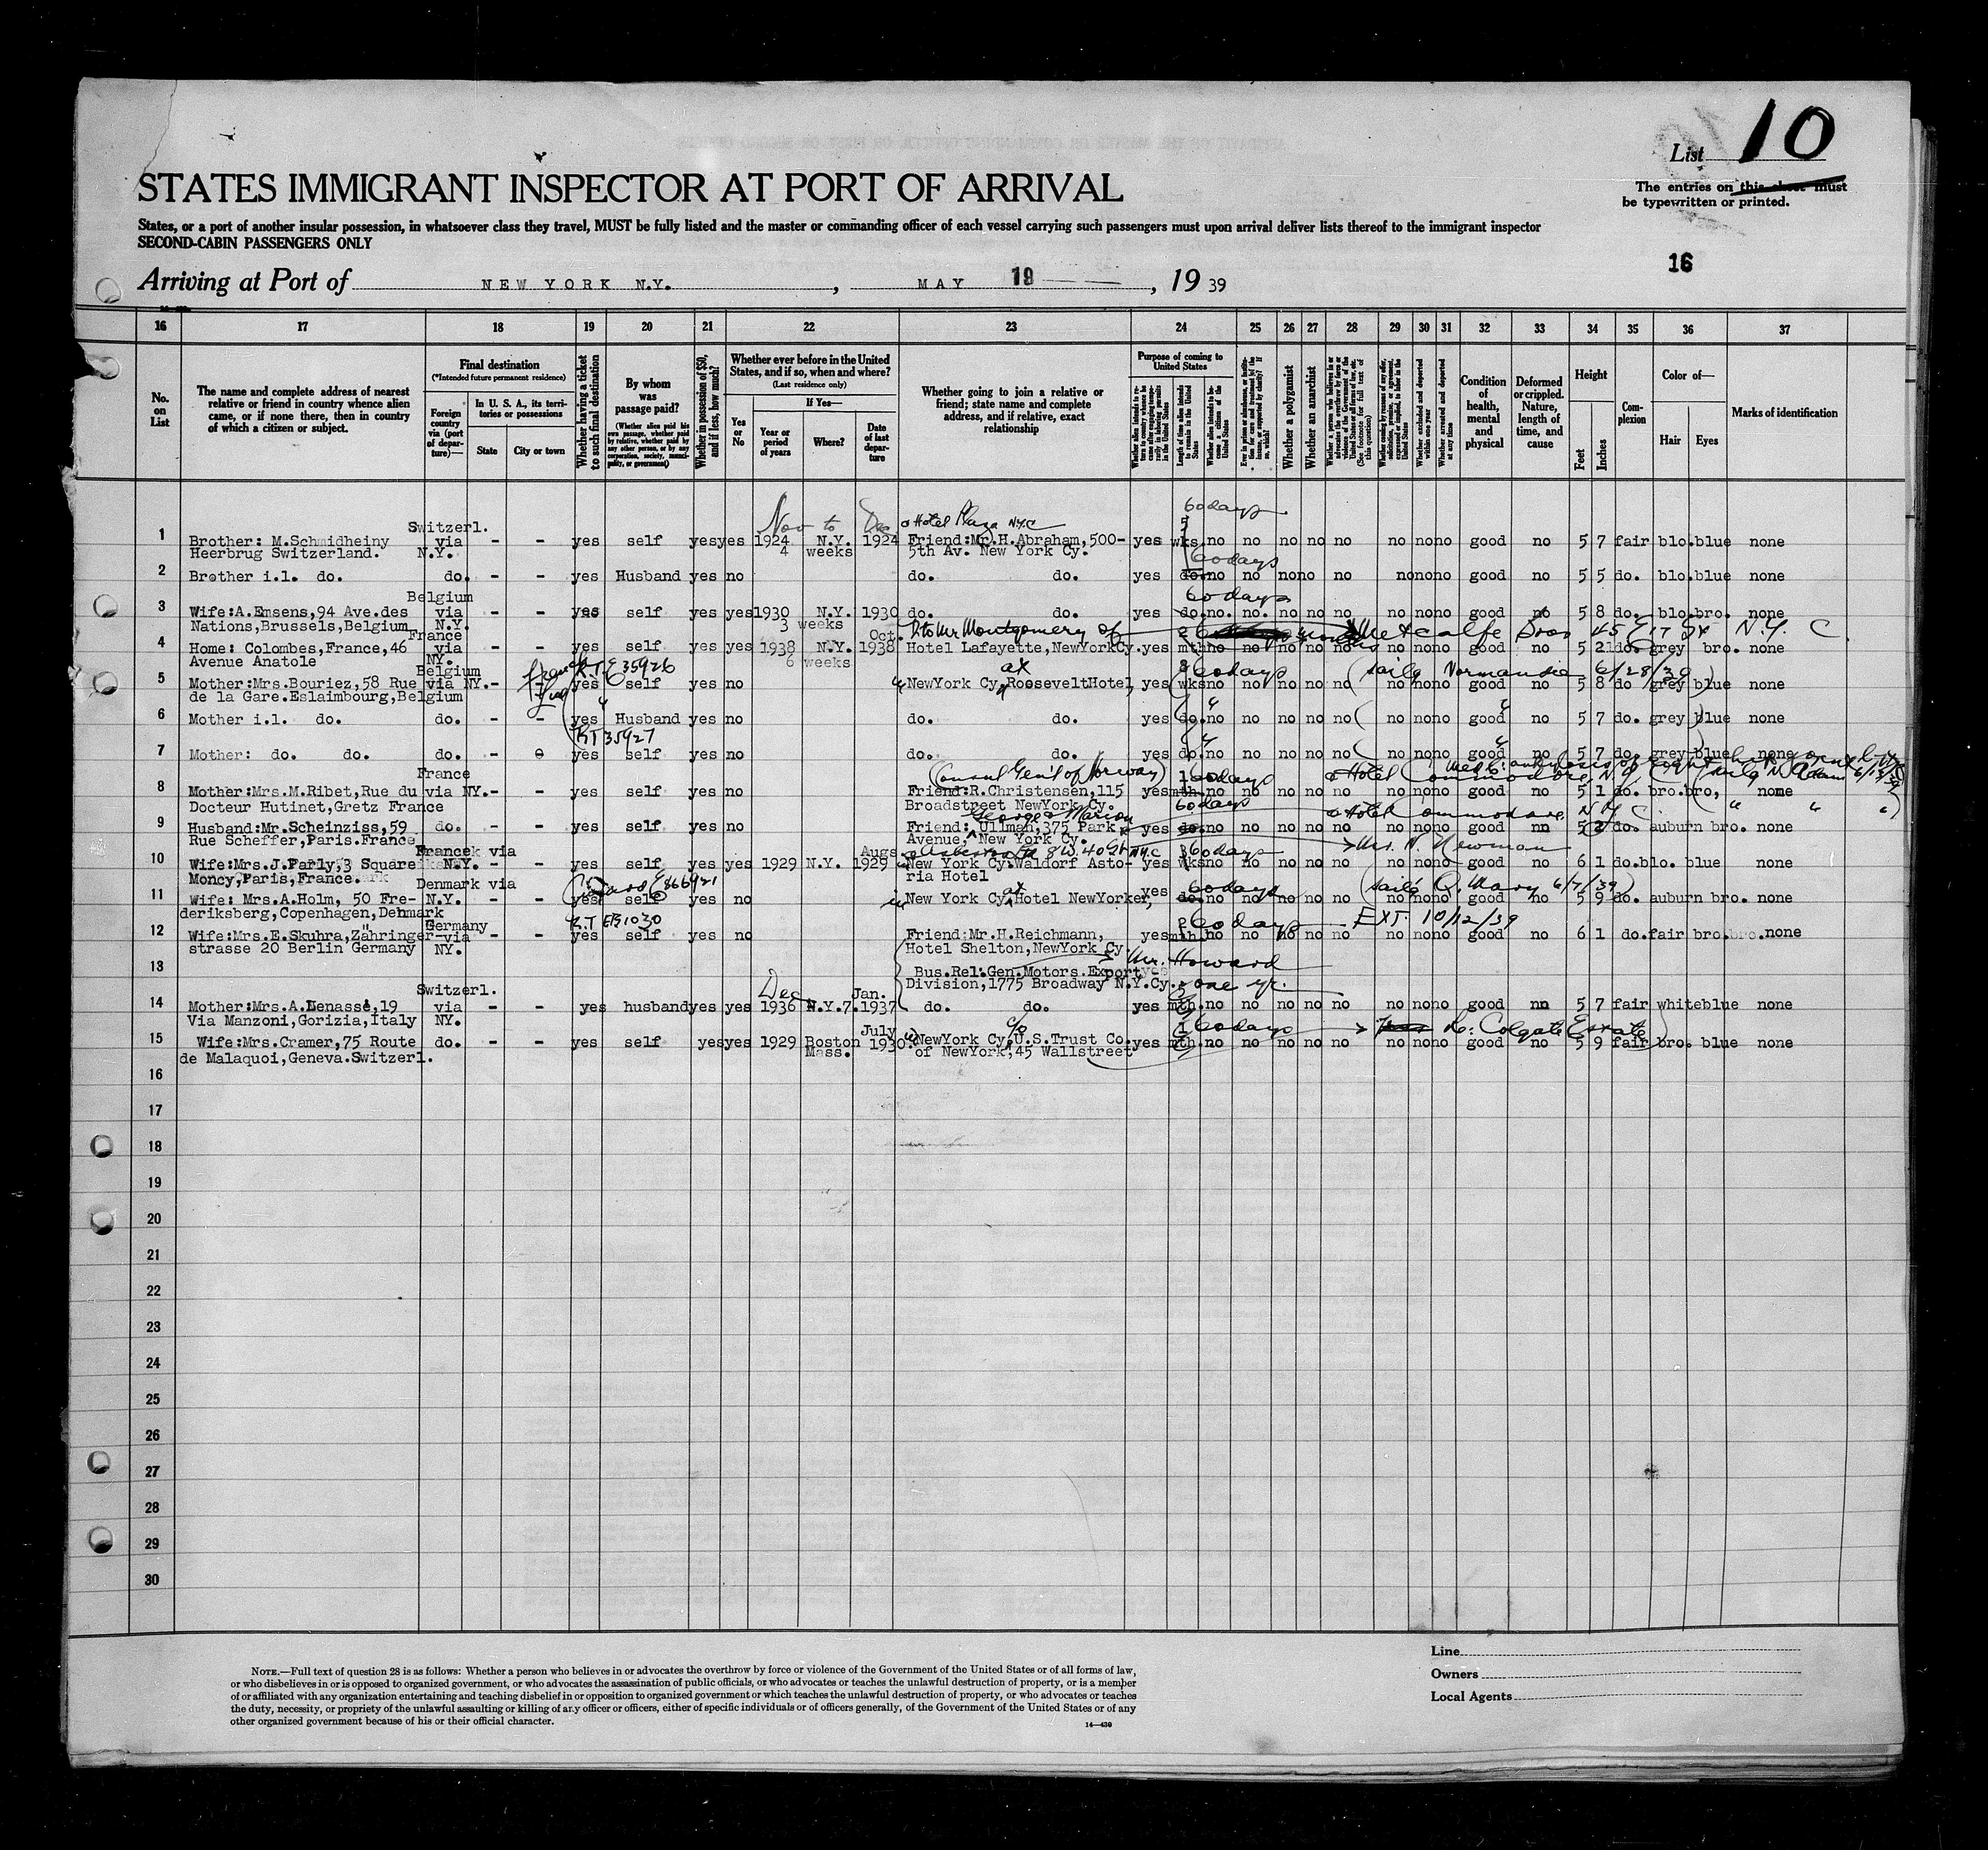 List 10
The entries on this sheet must
be typewritten or printed.
STATES IMMIGRANT INSPECTOR AT PORT OF ARRIVAL
States, or a port of another insular possession, in whatsoever class they travel, MUST be fully listed and the master or commanding officer of each vessel carrying such passengers must upon arrival deliver lists thereof to the immigrant inspector
SECOND-CABIN PASSENGERS ONLY
16
Arriving at Port of NEW YORK N.Y. , MAY 19 , 1939
16 17 18 19 20 21 22 23 24 25 26 27 28 29 30 31 32 33 34 35 36 37
No. on List
The name and complete address of nearest relative or friend in country whence alien came, or if none there, then in country of which a citizen or subject.
Final destination
(*Intended future permanent residence)
Foreign country via (port of departure)—
In U. S. A., its territories or possessions
State
City or town
Whether having a ticket to such final destination
By whom was passage paid?
(Whether alien paid his own passage, whether paid by relative, whether paid by any other person, or by any corporation, society, municipality, or government)
Whether in possession of $50, and if less, how much?
Whether ever before in the United States, and if so, when and where?
(Last residence only)
Yes or No
If Yes—
Year or period of years
Where?
Date of last departure
Whether going to join a relative or friend; state name and complete address, and if relative, exact relationship
Purpose of coming to United States
Length of time alien intends to remain in the United States
Whether a polygamist
Whether an anarchist
Condition of health, mental and physical
Deformed or crippled. Nature, length of time, and cause
Height
Feet
Inches
Complexion
Color of—
Hair
Eyes
Marks of identification
Switzerl. Nov to Dec Hotel Plaza NYC 60 days
1 Brother: M.Schmidheiny via - - yes self yes yes 1924 N.Y. 1924 Friend:Mr.H.Abraham,500- yes 5 wks no no no no no no no no good no 5 7 fair blo. blue none
Heerbrug Switzerland. N.Y. 4 weeks 5th Av. New York Cy. 60 days
2 Brother i.l. do. do. - - yes Husband yes no do. do. yes do. no no no no no no no no good no 5 5 do. blo. blue none
Belgium 60 days
3 Wife:A.Emsens,94 Ave.des via - - yes self yes yes 1930 N.Y. 1930 do. do. yes do. no. no. no no no no no no good no 5 8 do. blo. bro. none
Nations,Brussels,Belgium N.Y. 3 weeks
France Oct. Mr Montgomery of Metcalfe Bros 45 E 17 St N.Y. C.
4 Home: Colombes,France,46 via - - yes self yes yes 1938 N.Y. 1938 Hotel Lafayette,NewYorkCy. yes 2 mth no no no no no no no no good no 5 2 do. grey bro. none
Avenue Anatole NY. 6 weeks
Belgium R.T.E 35926 at 60 days (sails Normandie 6/28/39)
5 Mother:Mrs.Bouriez,58 Rue via NY. - - yes self yes no NewYork Cy,RooseveltHotel, yes 8 wks no no no no no no no no good no 5 8 do grey blue none
de la Gare.Eslaimbourg,Belgium
6 Mother i.l. do. do. - - yes Husband yes no do. do. yes do. no no no no no no no no good no 5 7 do. grey blue none
RT 35927
7 Mother: do. do. do. - yes self yes no do. do. yes do. no no no no no no no no good no 5 7 do. grey blue none
France (Consul Gen'l of Norway) 60 days Hotel Commodore, N.Y.
8 Mother:Mrs.M.Ribet,Rue du via NY. - - yes self yes no Friend:R.Christensen,115 yes 1 mth. no no no no no no no no good no 5 1 do. bro. bro, none
Docteur Hutinet,Gretz France Broadstreet NewYork Cy. 60 days
George & Marion Hotel Commodore N.Y. C.
9 Husband:Mr.Scheinziss,59 do. - - yes self yes no Friend: Ullman,375 Park yes do. no no no no no no no no good no 5 2 do. auburn bro. none
Rue Scheffer,Paris.France Avenue, New York Cy.
France via Aug. 8 W. 40 St NYC 60 days Mrs. N. Newman
10 Wife:Mrs.J.Parly,3 Square N.Y. - - yes self yes yes 1929 N.Y. 1929 New York Cy.Waldorf Asto- yes 3 wks no no no no no no no no good no 6 1 do. blo. blue none
Moncy,Paris,France. ria Hotel
Denmark via at 60 days (sails Q. Mary 6/7/39)
11 Wife: Mrs.A.Holm, 50 Fre- N.Y. - - yes self yes no in New York Cy,Hotel NewYorker, yes do. no no no no no no no no good no 5 9 do. auburn bro. none
deriksberg,Copenhagen,Denmark
Germany 60 days EXT 10/12/39
12 Wife:Mrs.E.Skuhra,Zähringer- via - - yes self yes no Friend:Mr.H.Reichmann, yes 2 mth. no no no no no no no no good no 6 1 do. fair bro. none
strasse 20 Berlin Germany NY. Hotel Shelton,NewYork Cy.
Mr. Howard
13 Bus.Rel:Gen.Motors.Export
Switzerl. Dec Jan. Division,1775 Broadway N.Y.Cy. one yr.
14 Mother:Mrs.A.Lenassi,19 via - - yes husband yes yes 1936 N.Y. 1937 do. do. yes mth. no no no no no no no no good no 5 7 fair white blue none
Via Manzoni,Gorizia,Italy NY.
July c/o 60 days Colgate Estate
15 Wife:Mrs.Cramer,75 Route do. - - yes self yes yes 1929 Boston 1930 NewYork Cy,U.S.Trust Co. yes 1 mth. no no no no no no no no good no 5 9 fair bro. blue none
de Malaquoi,Geneva.Switzerl. Mass. of NewYork,45 Wallstreet
16
17
18
19
20
21
22
23
24
25
26
27
28
29
30
NOTE.—Full text of question 28 is as follows: Whether a person who believes in or advocates the overthrow by force or violence of the Government of the United States or of all forms of law,
or who disbelieves in or is opposed to organized government, or who advocates the assassination of public officials, or who advocates or teaches the unlawful destruction of property, or is a member
of or affiliated with any organization entertaining and teaching disbelief in or opposition to organized government or which teaches the unlawful destruction of property, or who advocates or teaches
the duty, necessity, or propriety of the unlawful assaulting or killing of any officer or officers, either of specific individuals or of officers generally, of the Government of the United States or of any
other organized government because of his or their official character.
14—430
Line
Owners
Local Agents